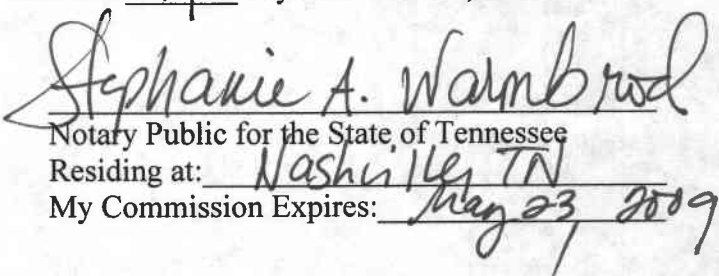 Stephanie A. Warmbrod
Notary Public for the State of Tennessee
Residing at: Nashville, TN
My Commission Expires: May 23, 2009